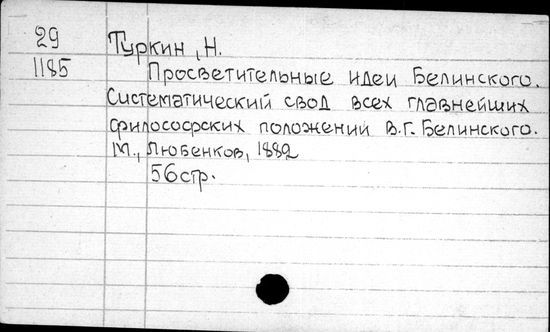 29 Туркин, Н.
1185 Просветительные идеи Белинского.
Систематический свод всех главнейших
философских положений В.Г. Белинского.
М., Любенков, 1882
56 стр.